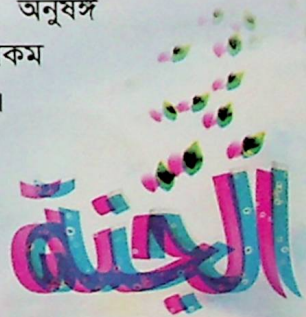 অনুষঙ্গ
কম
।
الجنة